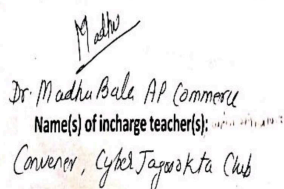 Madhu
Dr. Madhu Bala AP Commerce
Name(s) of incharge teacher(s):
Convener, Cyber Jagrookta Club